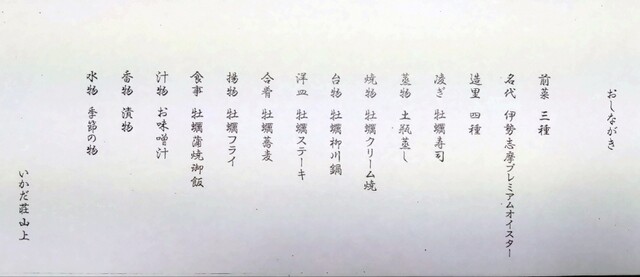 おしながき
前菜 三種
名代 伊勢志摩プレミアムオイスター
造里 四種
凌ぎ 牡蠣寿司
蒸物 土瓶蒸し
焼物 牡蠣クリーム焼
台物 牡蠣柳川鍋
洋皿 牡蠣ステーキ
合肴 牡蠣蕎麦
揚物 牡蠣フライ
食事 牡蠣蒲焼御飯
汁物 お味噌汁
香物 漬物
水物 季節の物
いかだ荘山上